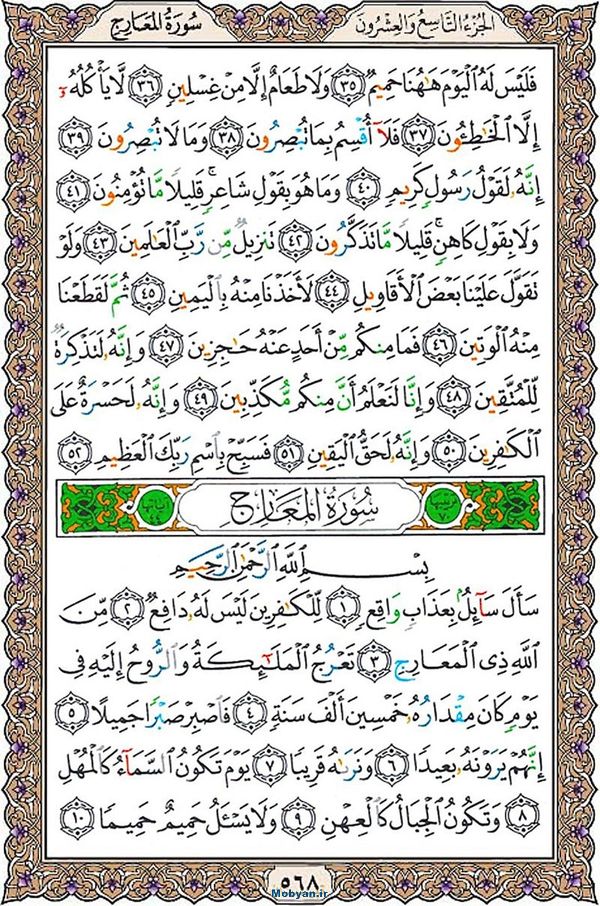 الجزء التاسع والعشرون
سورة المعارج
فَلَيْسَ لَهُ الْيَوْمَ هَاهُنَا حَمِيمٌ ﴿٣٥﴾ وَلَا طَعَامٌ إِلَّا مِنْ غِسْلِينٍ ﴿٣٦﴾ لَّا يَأْكُلُهُ
إِلَّا الْخَاطِئُونَ ﴿٣٧﴾ فَلَا أُقْسِمُ بِمَا تُبْصِرُونَ ﴿٣٨﴾ وَمَا لَا تُبْصِرُونَ ﴿٣٩﴾
إِنَّهُ لَقَوْلُ رَسُولٍ كَرِيمٍ ﴿٤٠﴾ وَمَا هُوَ بِقَوْلِ شَاعِرٍ ۚ قَلِيلًا مَّا تُؤْمِنُونَ ﴿٤١﴾
وَلَا بِقَوْلِ كَاهِنٍ ۚ قَلِيلًا مَّا تَذَكَّرُونَ ﴿٤٢﴾ تَنزِيلٌ مِّن رَّبِّ الْعَالَمِينَ ﴿٤٣﴾ وَلَوْ
تَقَوَّلَ عَلَيْنَا بَعْضَ الْأَقَاوِيلِ ﴿٤٤﴾ لَأَخَذْنَا مِنْهُ بِالْيَمِينِ ﴿٤٥﴾ ثُمَّ لَقَطَعْنَا
مِنْهُ الْوَتِينَ ﴿٤٦﴾ فَمَا مِنكُم مِّنْ أَحَدٍ عَنْهُ حَاجِزِينَ ﴿٤٧﴾ وَإِنَّهُ لَتَذْكِرَةٌ
لِّلْمُتَّقِينَ ﴿٤٨﴾ وَإِنَّا لَنَعْلَمُ أَنَّ مِنكُم مُّكَذِّبِينَ ﴿٤٩﴾ وَإِنَّهُ لَحَسْرَةٌ عَلَى
الْكَافِرِينَ ﴿٥٠﴾ وَإِنَّهُ لَحَقُّ الْيَقِينِ ﴿٥١﴾ فَسَبِّحْ بِاسْمِ رَبِّكَ الْعَظِيمِ ﴿٥٢﴾
ترتيبها ٧٠ سُورَةُ المَعَارِجِ آياتها ٤٤
بِسْمِ اللَّهِ الرَّحْمَٰنِ الرَّحِيمِ
سَأَلَ سَائِلٌ بِعَذَابٍ وَاقِعٍ ﴿١﴾ لِّلْكَافِرِينَ لَيْسَ لَهُ دَافِعٌ ﴿٢﴾ مِّنَ
اللَّهِ ذِي الْمَعَارِجِ ﴿٣﴾ تَعْرُجُ الْمَلَائِكَةُ وَالرُّوحُ إِلَيْهِ فِي
يَوْمٍ كَانَ مِقْدَارُهُ خَمْسِينَ أَلْفَ سَنَةٍ ﴿٤﴾ فَاصْبِرْ صَبْرًا جَمِيلًا ﴿٥﴾
إِنَّهُمْ يَرَوْنَهُ بَعِيدًا ﴿٦﴾ وَنَرَاهُ قَرِيبًا ﴿٧﴾ يَوْمَ تَكُونُ السَّمَاءُ كَالْمُهْلِ
﴿٨﴾ وَتَكُونُ الْجِبَالُ كَالْعِهْنِ ﴿٩﴾ وَلَا يَسْأَلُ حَمِيمٌ حَمِيمًا ﴿١٠﴾
٥٦٨
Mobyan.ir